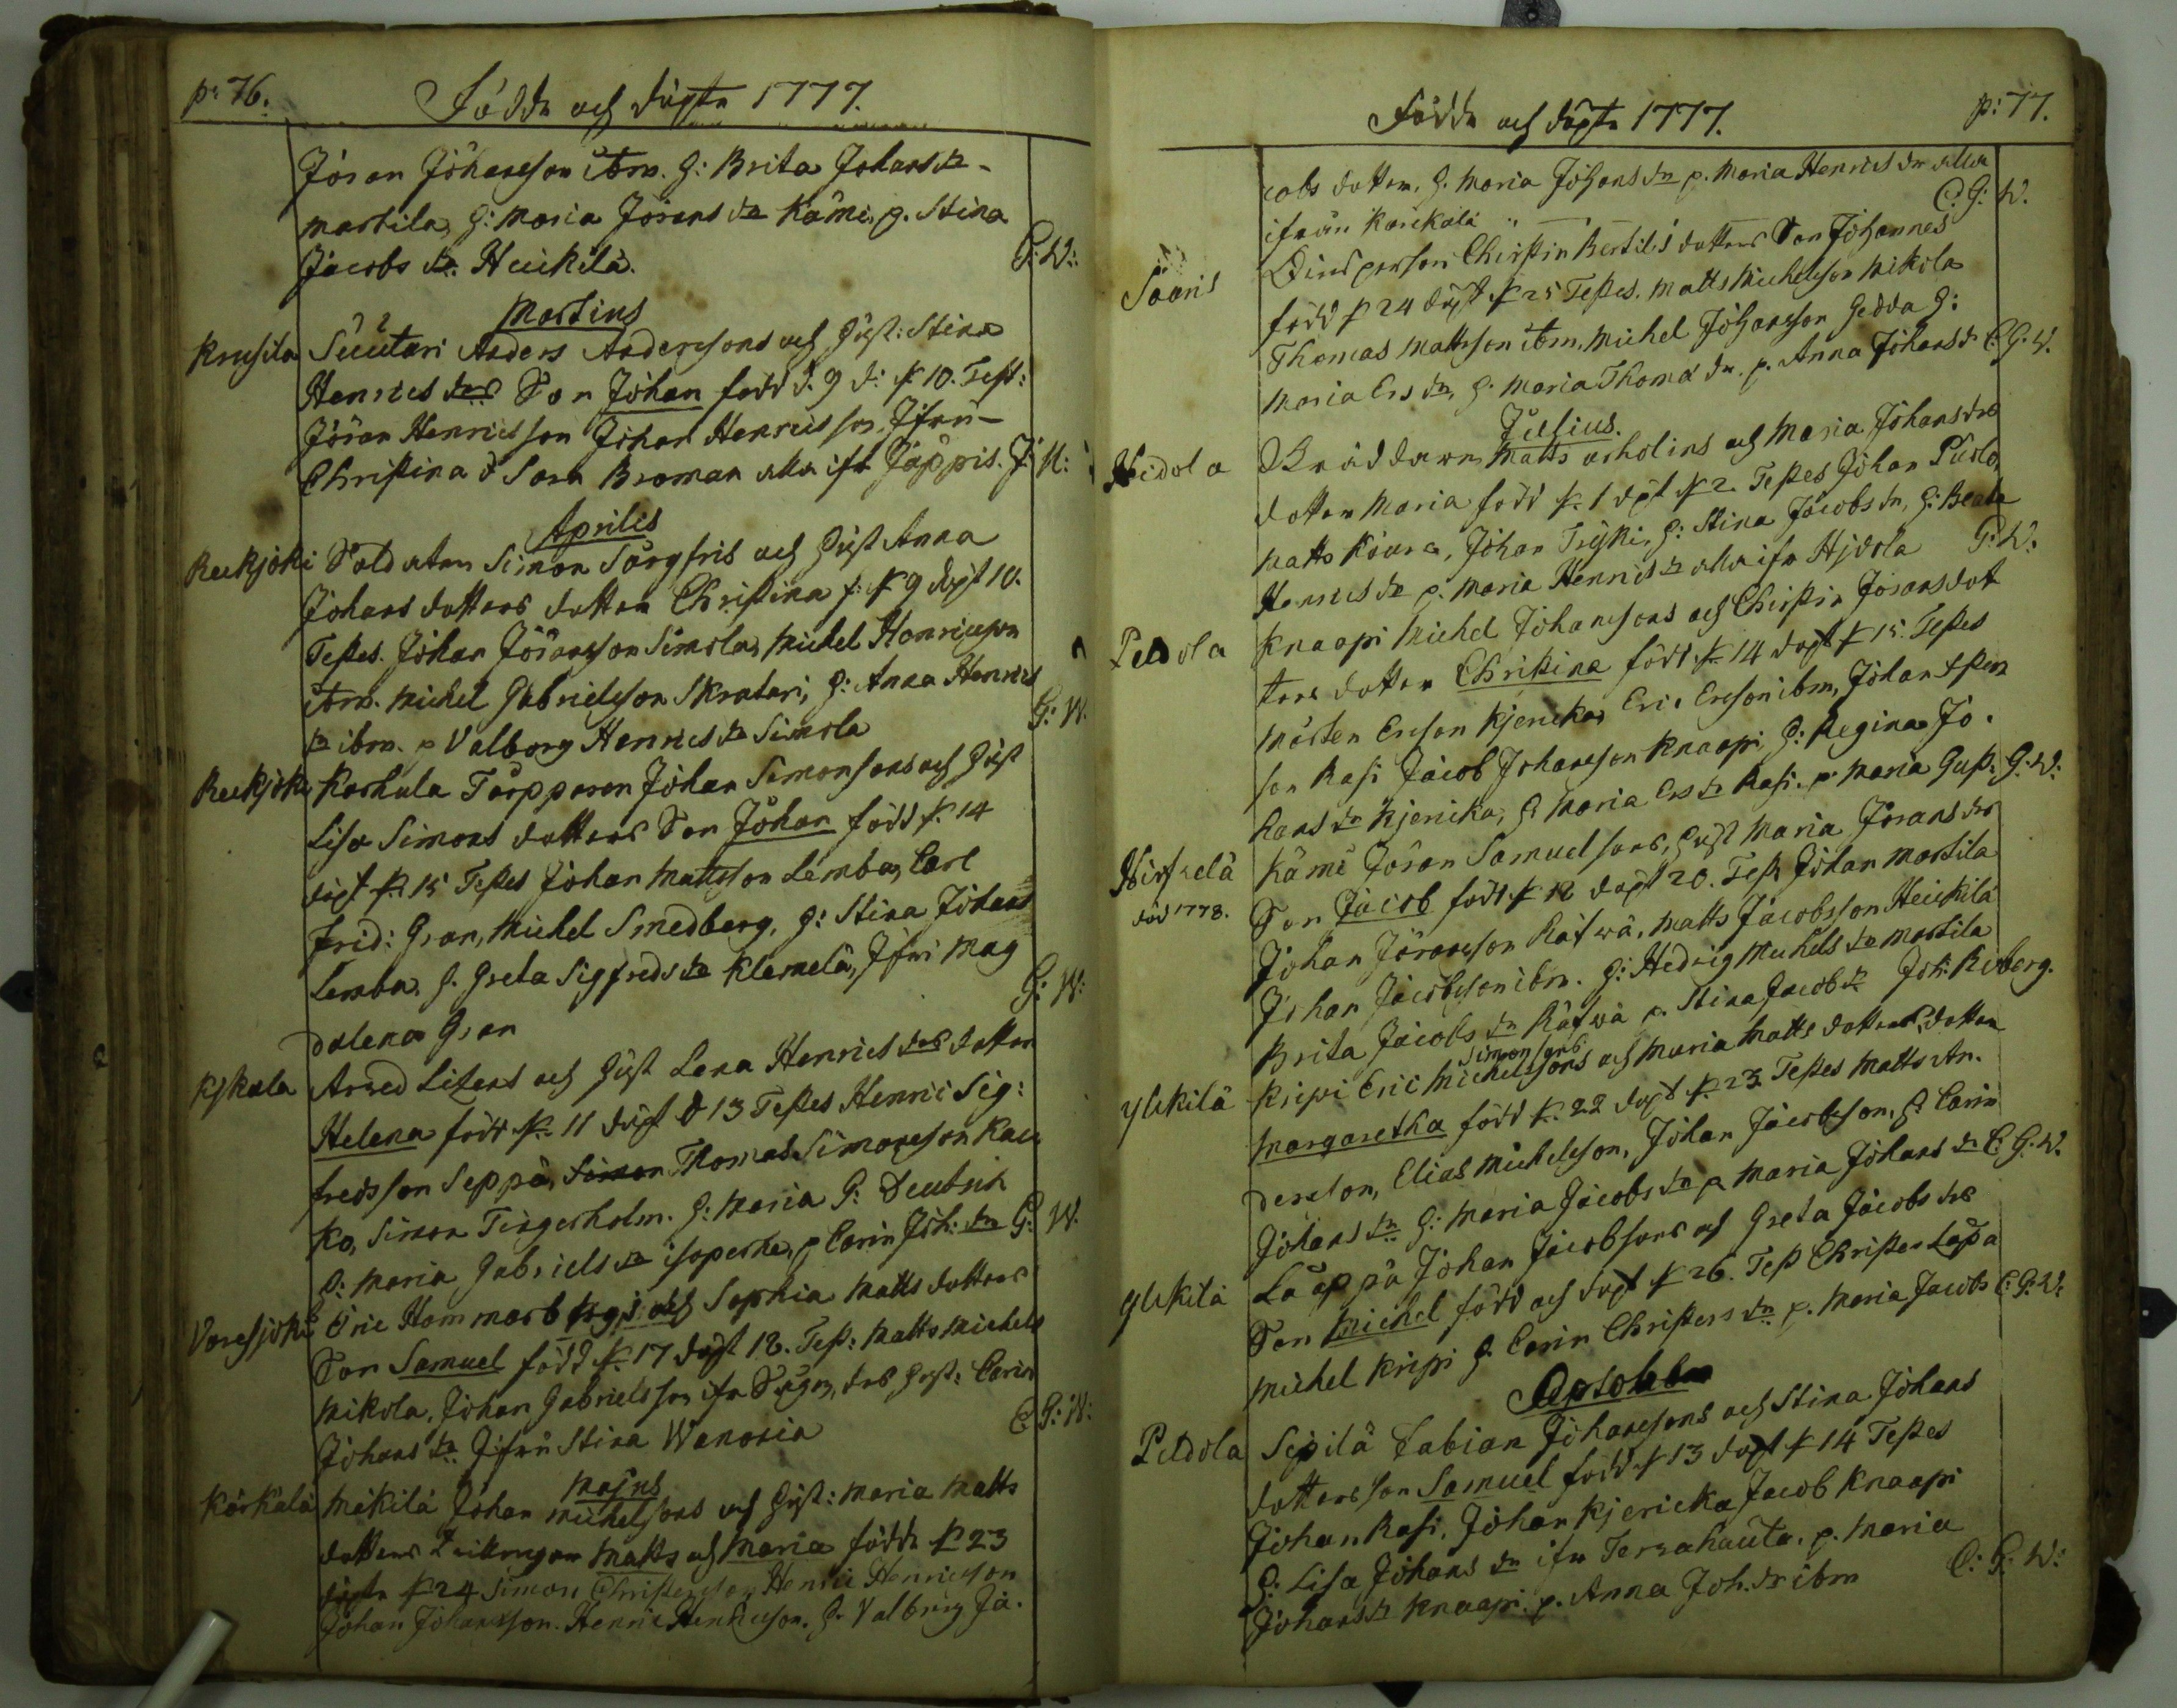 p: 76.
Födde och döpte 1777.
Jöran Johansson ibm. h: Brita Johans dr
martila, h: Maria Jörans dr Kämi, p. Stina
Jacobs dr. Heikilä.
G: W:
Martius
Krusila Suutari Anders Anderssons och hust: Stina
Henrics drs Son Johan född d. 9 d: 10. Test:
Jöran Henricsson Johan Henricsson, Jfru
Christina o Sara Broman alla ifr Jäppis. J: N:
Aprilis
Reckjoki Soldaten Simon Sorgfris och hust Anna
Johans dotters dotter Christina f: 9 döpt 10.
Testes. Johan Jöransson Simola, Michel Henricsson
ibm. Michel Gabrielsson Skratari, h: Anna Henrics
dr ibm. p Valborg Henrics dr Simola
G: W.
Reckjoki Karhula Torpparen Johan Simonsons och hust
Lisa Simons dotters Son Johan född 14
döpt 15 Testes Johan Mattsson Lemba, Carl
Frid: Gran, Michel Smedberg, h: Stina Johans
Lemba. h. Greta Sigfreds dr Klemelä, Jfru Mag
dalena Gran
G: W:
Kjkala Arved Litens och hust Lena Henrics drs dotter
Helena född 11 döpt d 13 Testes Henric Sig:
fredsson Seppä, Simon Thomas Simonsson Kau
ko, Simon Tingerholm. h: Maria G: Deutsch
h: Maria Gabriels dr isoperhe, p Carin Joh: dr G: W.
Voresjoki Eric Hammarbergs och Sophia Matts dotters
Son Samuel född 17 döpt 18. Test: Matts Michels
Mikola, Johan Gabrielsson ifr hust: Carin
Johans dr Jfru Stina Wanonia
C G: W:
Majus
Kärkälä Mikilä Johan Michelsons och hust: Maria Matts
dotters Twillingar Matts och Maria födde 23
döpte 24 Simon Christersson, Henric Henricsson
Johan Johansson. Henric Henricsson. h. Valborg Ja.
Födde och döpte 1777.
p: 77.
cobs dotter, h. Maria Johans dr p. Maria Henrics dr alla
ifrån Karikala
C. G: W.
Saaris Qvinspersons Christin Bertils dotters Son Johannes
född 24 döpt 25 Testes. Matts Michelsson Mikola
Thomas Mattsson ibm, Michel Johansson Gedda h:
Maria Ers dr, h. Maria Thomæ dr. p. Anna Johans dr C. G. W.
Julius.
Hidola Matts Arholins och Maria Johans drs
dotter Maria född 1 dpt 2. Testes Johan
Matts Kaura, Johan h: Stina Jacobs dr, h: Beata
Henrics dr p. Maria Henrics dr alla ifr Hjdola G: W:
Peldola Knaapi Michel Johansons och Christin Jörans dot
ters dotter Christina född 14 döpt 15. Testes
Mårten Ersson Kjericka, Eric Ersson ibm, Johan
son Rasi Jacob Johansson Knaapi, h: Regina Jo.
hans dr Kjericka, h Maria Ers dr Rasi. p. Maria Gust: G: W:
Hirfselä Kämi Jöran Samuelsons, hust Maria Jörans drs
död 1778. Son Jacob född 18 döpt 20. Test Johan Martila
Johan Jöransson Rätwä, Matts Jacobsson Heikilä
Johan Jacobsson ibm. h: Hedvig Michels dr Martila
Brita Jacobs dr Rätwä p. Stina Jacobs dr Joh: Reberg.
Simonsons
Ylikilä Kripi Eric Michelssons och Maria Matts dotters dotter
Margaretha född 22 döpt 23 Testes Matts An.
dersson, Elias Michelsson, Johan Jacobsson, h Carin
Johans dr h: Maria Jacobs dr p. Maria Johans dr C. G. W.
Ylikilä Laappä Johan Jacobsons och Greta Jacobs drs
Son Michel född och döpt 26. Test Christer Lapa
Michel Kripi h. Carin Christers dr p. Maria Jacobs C: G: W:
Peldola Sepilä Fabian Johanssons och Stina Johans
dotters son Samuel född 13 döpt 14 Testes
Johan Rasi, Johan Kjericka Jacob Knaapi
h: Lisa Johans dr ifr Tervahauta. p. Maria
Johans dr Knaapi. p. Anna Joh. dr ibm C: G: W: